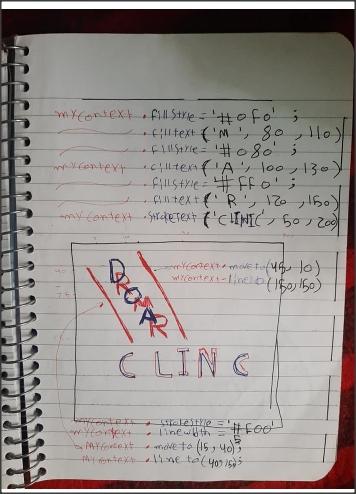 myContext . fillStyle = '#0F0' ;
. filltext ('M', 80, 110)
. fillStyle = '#080' ;
myContext . filltext ('A', 100, 130)
. fillStyle = '#FF0' ;
. filltext ('R', 120, 150)
myContext . stroketext ('CLINIC', 50, 200)
myContext . moveto (45, 10)
myContext . lineto (150, 150)
DROMAR
C LIN C
myContext . strokestyle = '#F00'
myContext . linewidth = 5
myContext . moveto (15, 40);
myContext . lineto (40, 150);